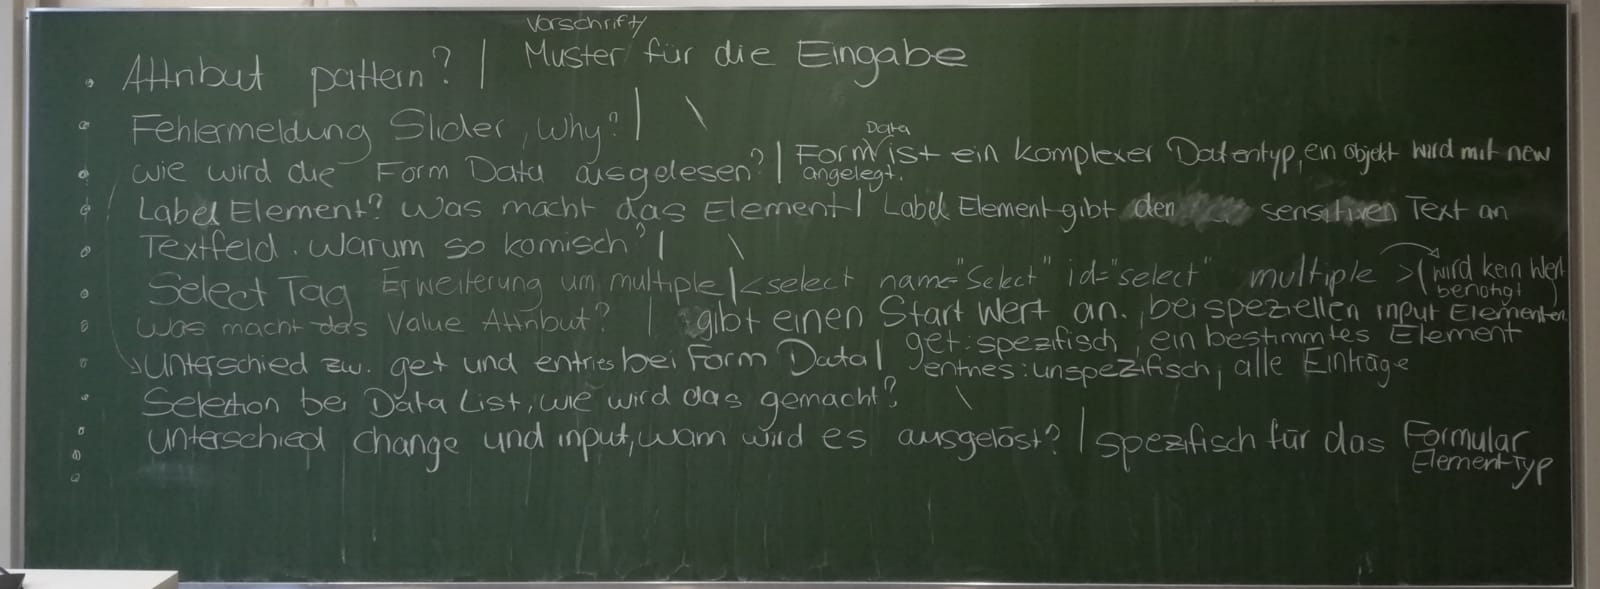 Vorschrift/
• Attribut pattern? | Muster für die Eingabe
• Fehlermeldung Slider, Why? | \
Data
• wie wird die Form Data ausgelesen? | Form ist ein komplexer Datentyp, ein Objekt wird mit new
angelegt.
• Label Element? Was macht das Element | Label Element gibt den sensitiven Text an
• Textfeld. Warum so komisch? | \
• Select Tag Erweiterung um multiple | <select name="Select" id="select" multiple > (wird kein Wert
benötigt
• Was macht das Value Attribut? | gibt einen Start Wert an., bei speziellen input Elementen
• Unterschied zw. get und entries bei Form Data | get: spezifisch, ein bestimmtes Element
entries: unspezifisch, alle Einträge
• Selection bei Data List, wie wird das gemacht? \
• Unterschied change und input, wann wird es ausgelöst? | spezifisch für das Formular
Element-Typ